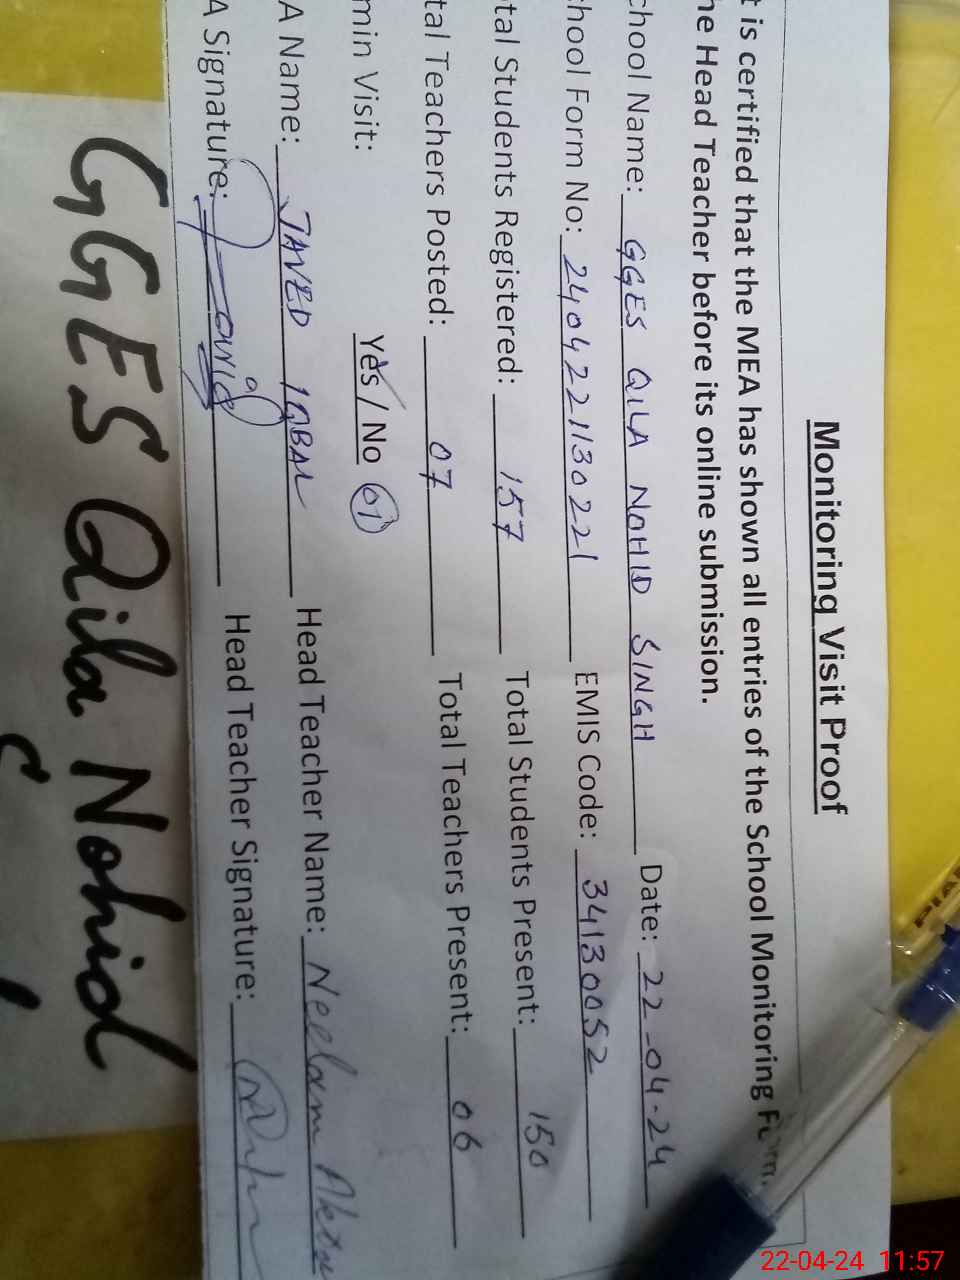 Monitoring Visit Proof
t is certified that the MEA has shown all entries of the School Monitoring Form.
he Head Teacher before its online submission.
chool Name: GGES QILA NOHID SINGH Date: 22-04-24
hool Form No: 2404221130221 EMIS Code: 34130052
tal Students Registered: 157 Total Students Present: 150
tal Teachers Posted: 07 Total Teachers Present: 06
min Visit: Yes / No 01
A Name: JAVED IQBAL Head Teacher Name: Neelam
A Signature: Head Teacher Signature:
GGES Qila Nohid
22-04-24 11:57